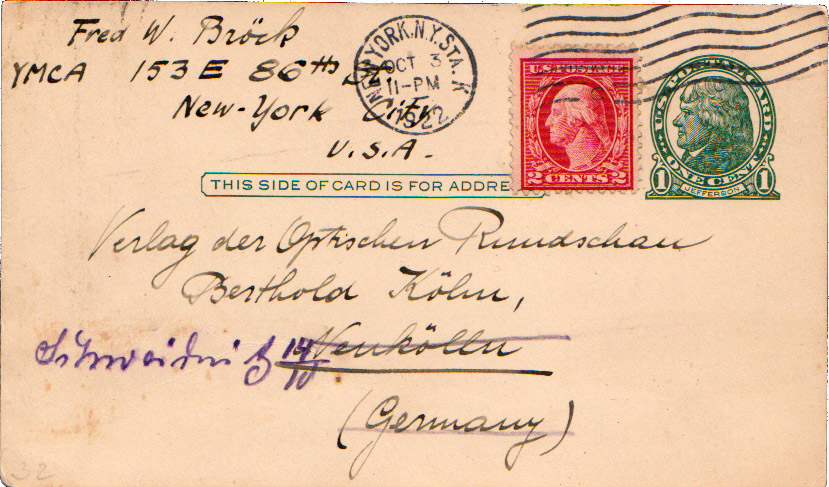 Fred W. Bröck
YMCA 153 E 86th St
New-York City
U.S.A.
NEW YORK, N.Y. STA. K
OCT 3
11-PM
1922
U.S. POSTAGE
2 CENTS 2
U.S. POSTAL CARD
1 ONE CENT 1
JEFFERSON
THIS SIDE OF CARD IS FOR ADDRE
Verlag der Optischen Rundschau
Berthold Köhn,
Schweidnitz 14/10 Neukölln
(Germany)
32